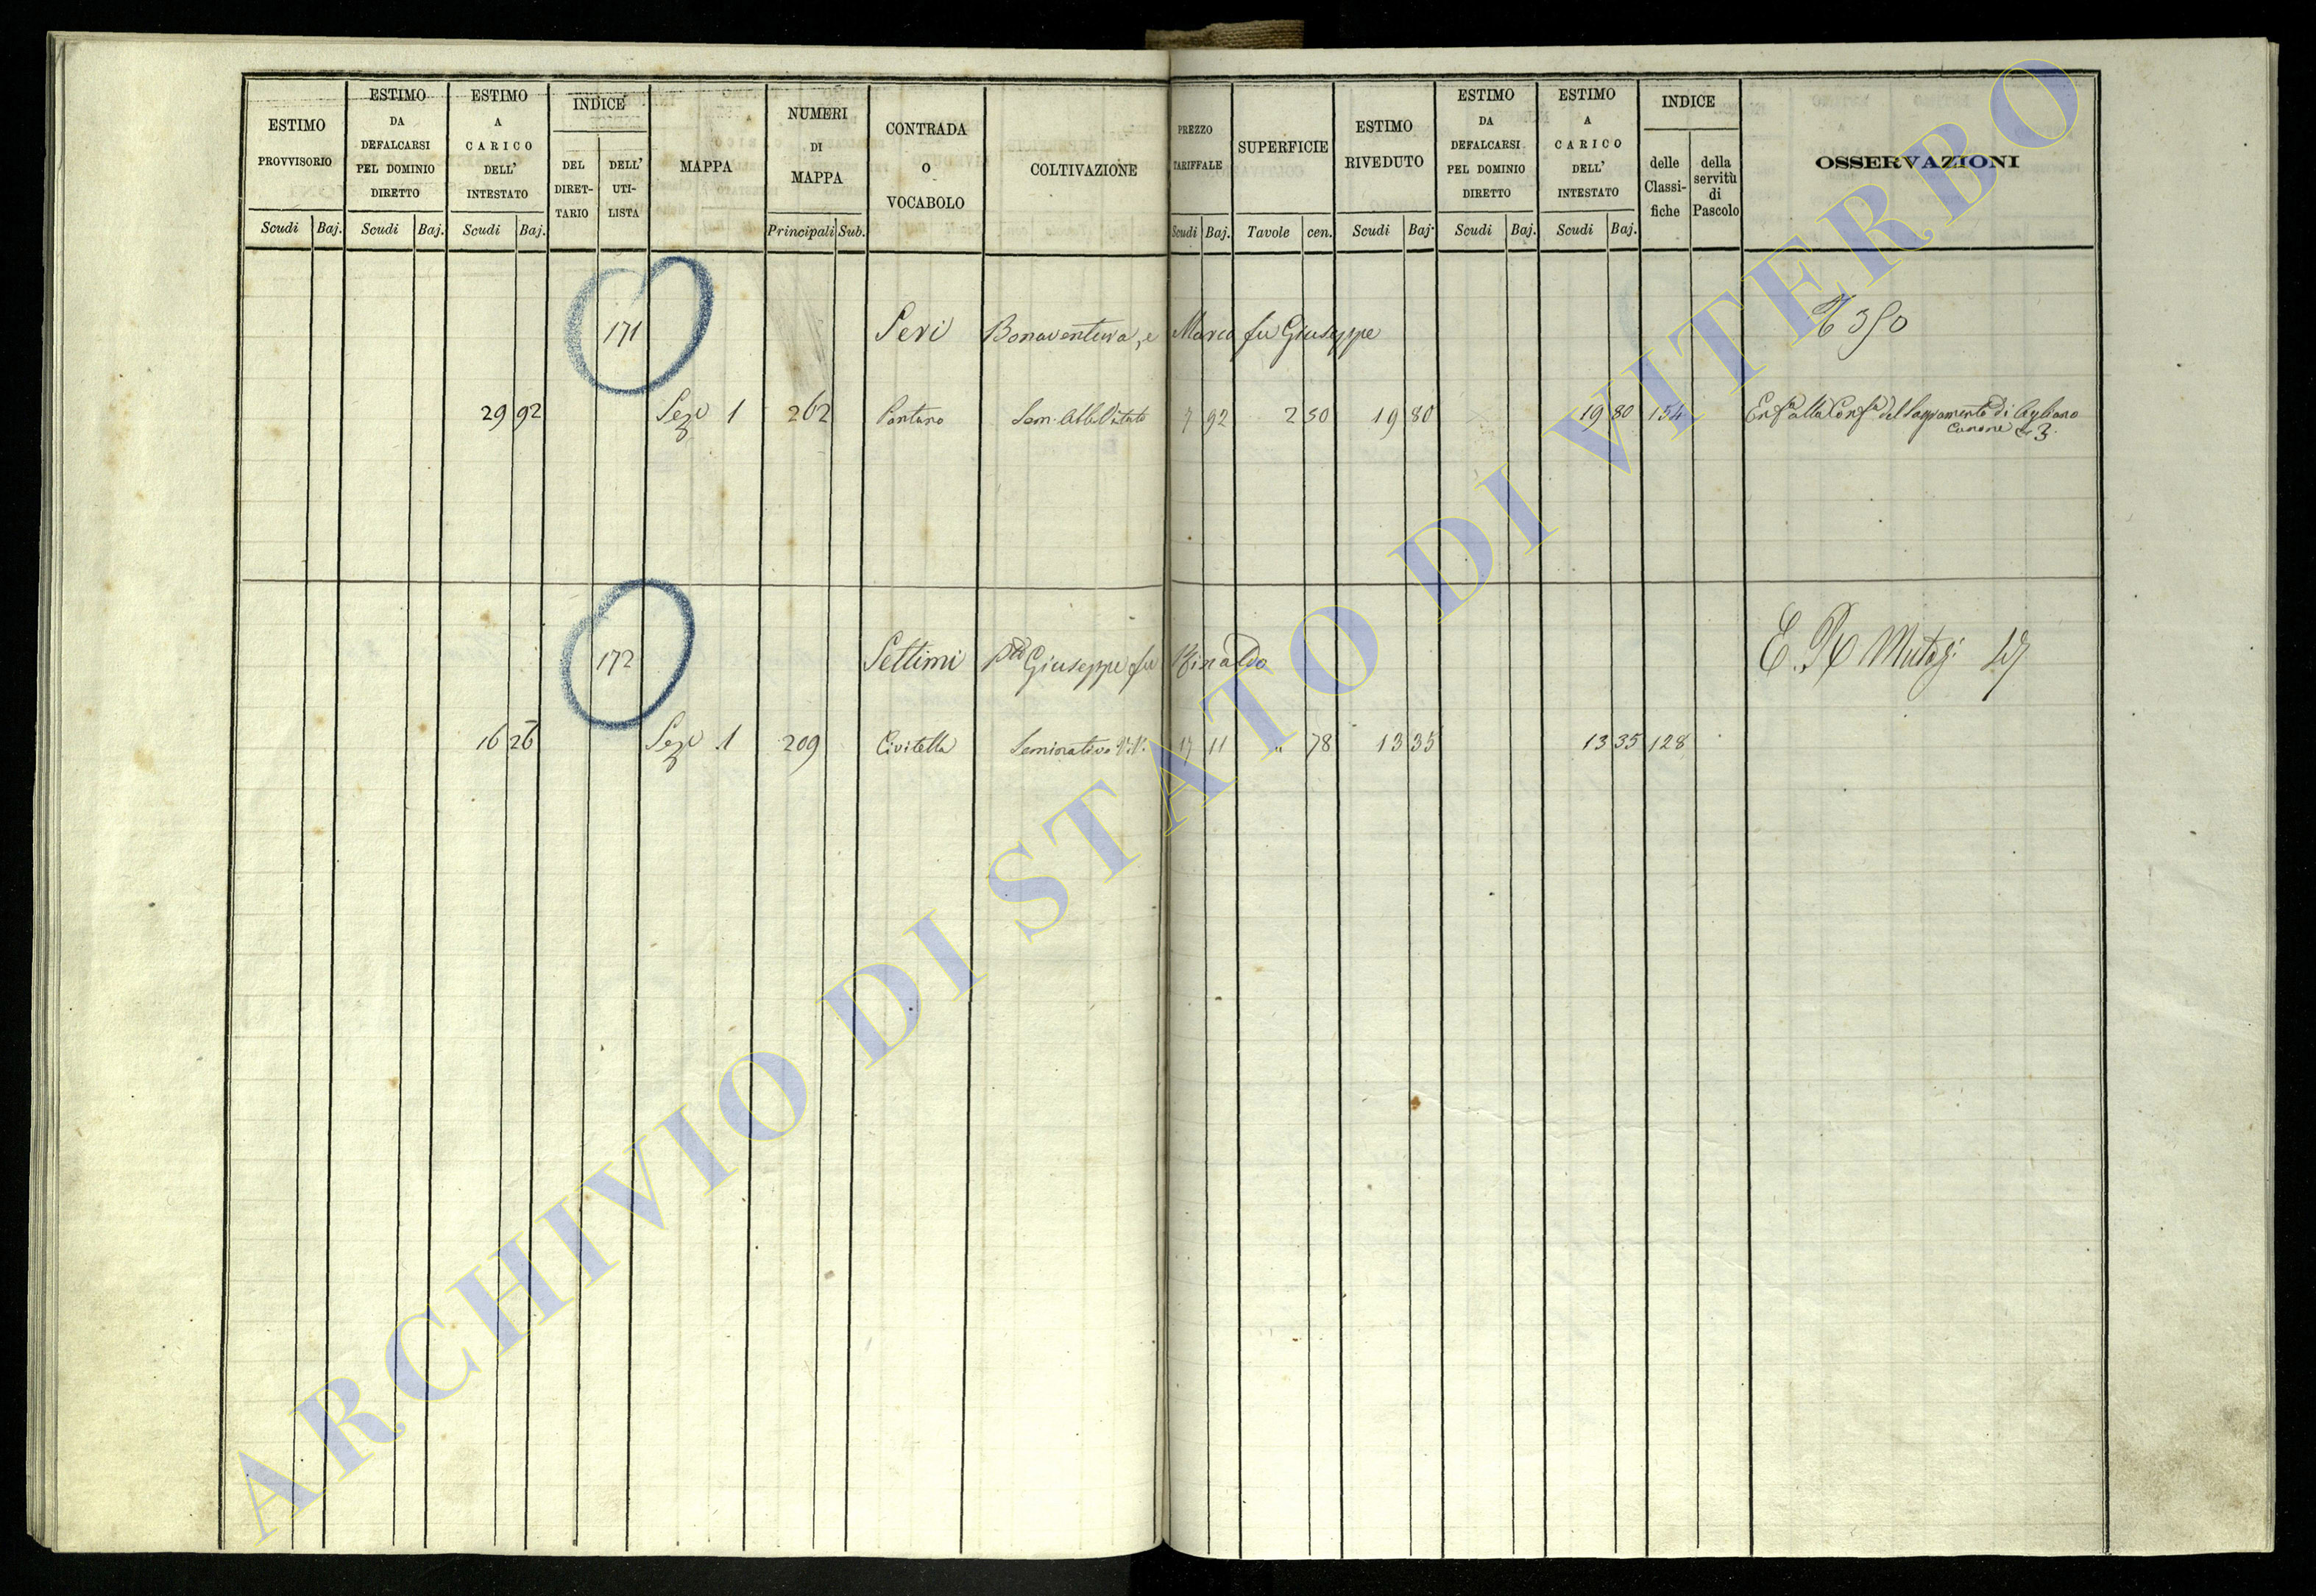 ESTIMO PROVVISORIO
Scudi Baj.
ESTIMO DA DEFALCARSI PEL DOMINIO DIRETTO
Scudi Baj.
ESTIMO A CARICO DELL' INTESTATO
Scudi Baj.
INDICE
DEL DIRET- TARIO
DELL' UTI- LISTA
MAPPA
NUMERI DI MAPPA
Principali Sub.
CONTRADA O VOCABOLO
COLTIVAZIONE
PREZZO TARIFFALE
Scudi Baj.
SUPERFICIE
Tavole cen.
ESTIMO RIVEDUTO
Scudi Baj.
ESTIMO DA DEFALCARSI PEL DOMINIO DIRETTO
Scudi Baj.
ESTIMO A CARICO DELL' INTESTATO
Scudi Baj.
INDICE
delle Classi- fiche
della servitù di Pascolo
OSSERVAZIONI
171 Seri Bonaventura, e Marco fu Giuseppe
29 92 Sez 1 262 Pantano Sem. 7 92 2 50 19 80 19 80 154 alla del di
Canone 3
172 Settimi Giuseppe fu Rinaldo
16 26 Sez 1 209 Civitella Seminativo 17 11 " 78 13 35 13 35 128
ARCHIVIO DI STATO DI VITERBO